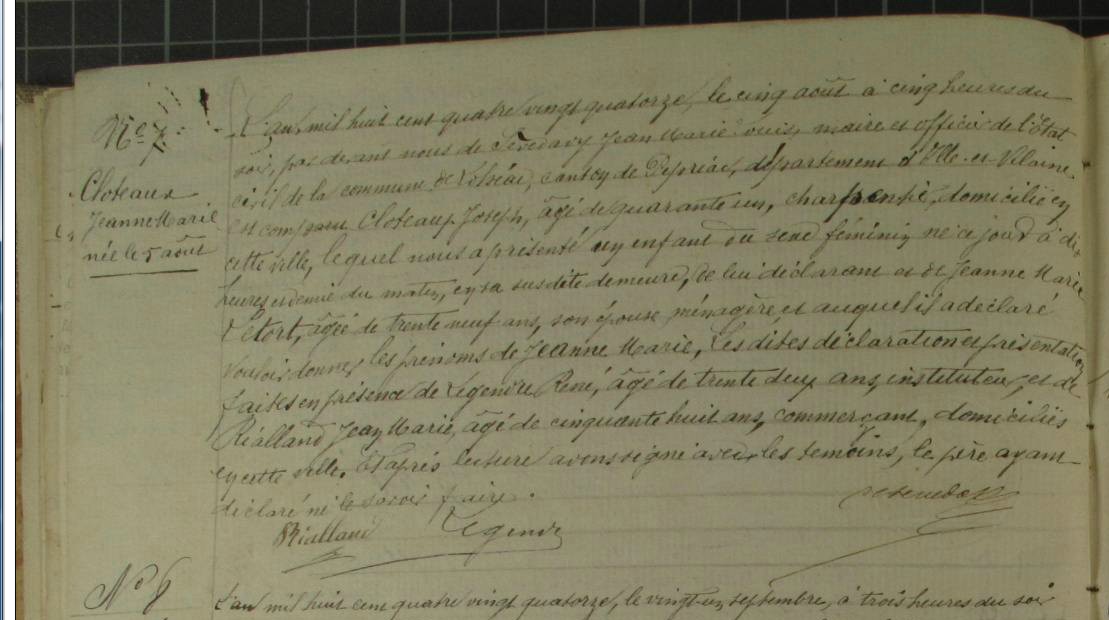 N° 7.
Cloteaux
Jeanne Marie
née le 5 août
L'an mil huit cent quatre vingt quatorze, le cinq août à cinq heures du
soir, par devant nous de Jean Marie maire et officier de l'Etat
civil de la commune de canton de département d'Ille-et-Vilaine
est comparu Cloteaux Joseph, âgé de quarante un, charpentier, domicilié en
cette ville, lequel nous a présenté un enfant du sexe féminin né ce jour à dix
heures et demie du matin, en sa susdite demeure, de lui déclarant et de Jeanne Marie
Létort, âgée de trente neuf ans, son épouse ménagère, et auquel il a déclaré
vouloir donner les prénoms de Jeanne Marie, Les dites déclaration et présentation
faites en présence de Legendre René, âgé de trente deux ans, instituteur, et de
Rialland Jean Marie, âgé de cinquante huit ans, commerçant, domiciliés
en cette ville. Et après lecture avons signé avec les témoins, le père ayant
déclaré ne le savoir faire.
Rialland Legendre
N° 8
L'an mil huit cent quatre vingt quatorze, le vingt un septembre, à trois heures du soir